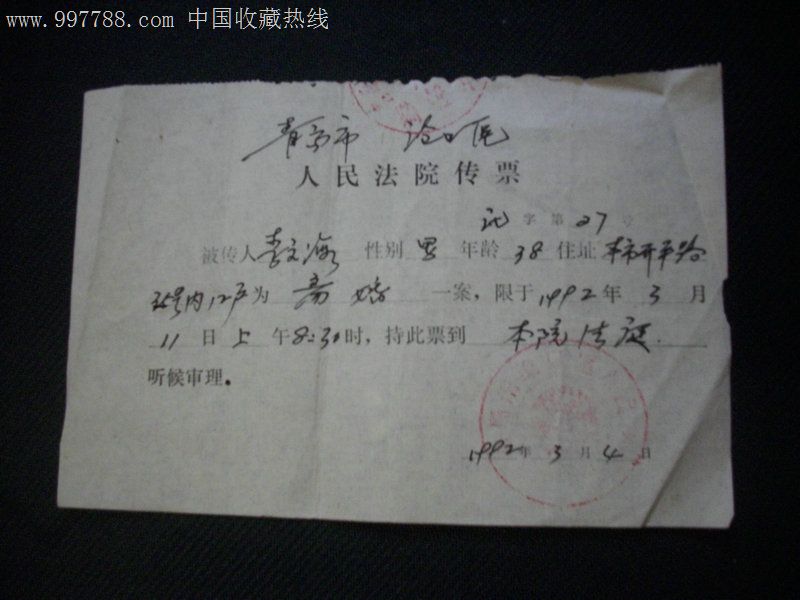 www.997788.com 中国收藏热线
青岛市 沧口区
人民法院传票
字第27号
被传人李文海 性别 男 年龄 38 住址 本市开平路
35号内12户为 离婚 一案，限于1992年3月
11日上午8:30时，持此票到 本院法庭
听候审理。
1992年3月4日